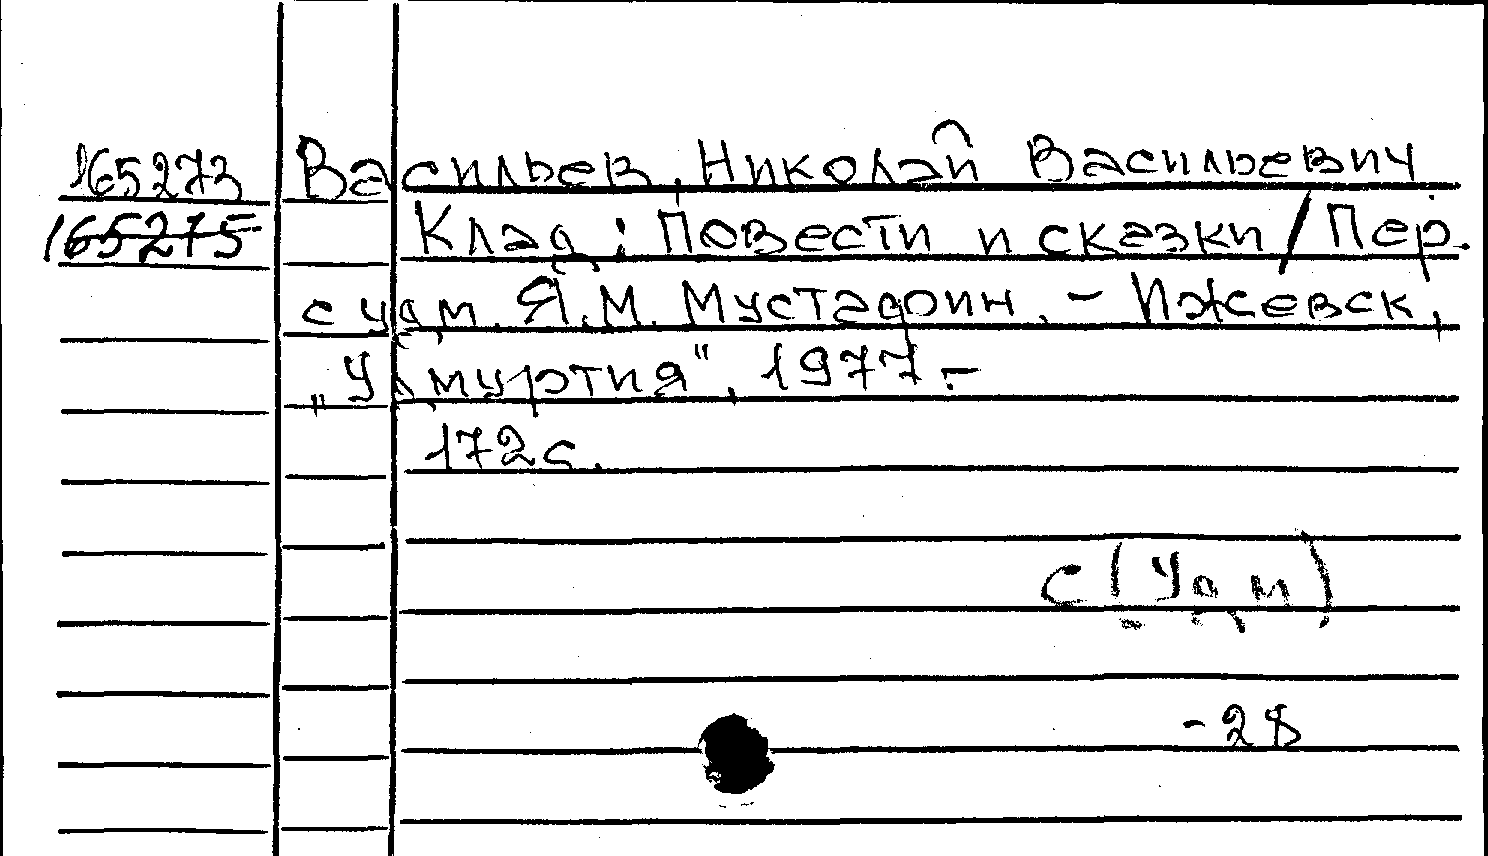 165273 Васильев, Николай Васильевич
165275 Клад: Повести и сказки / Пер.
с удм. Я.М. Мустафин. – Ижевск,
„Удмуртия", 1977. –
172с.
С(Удм)
-28